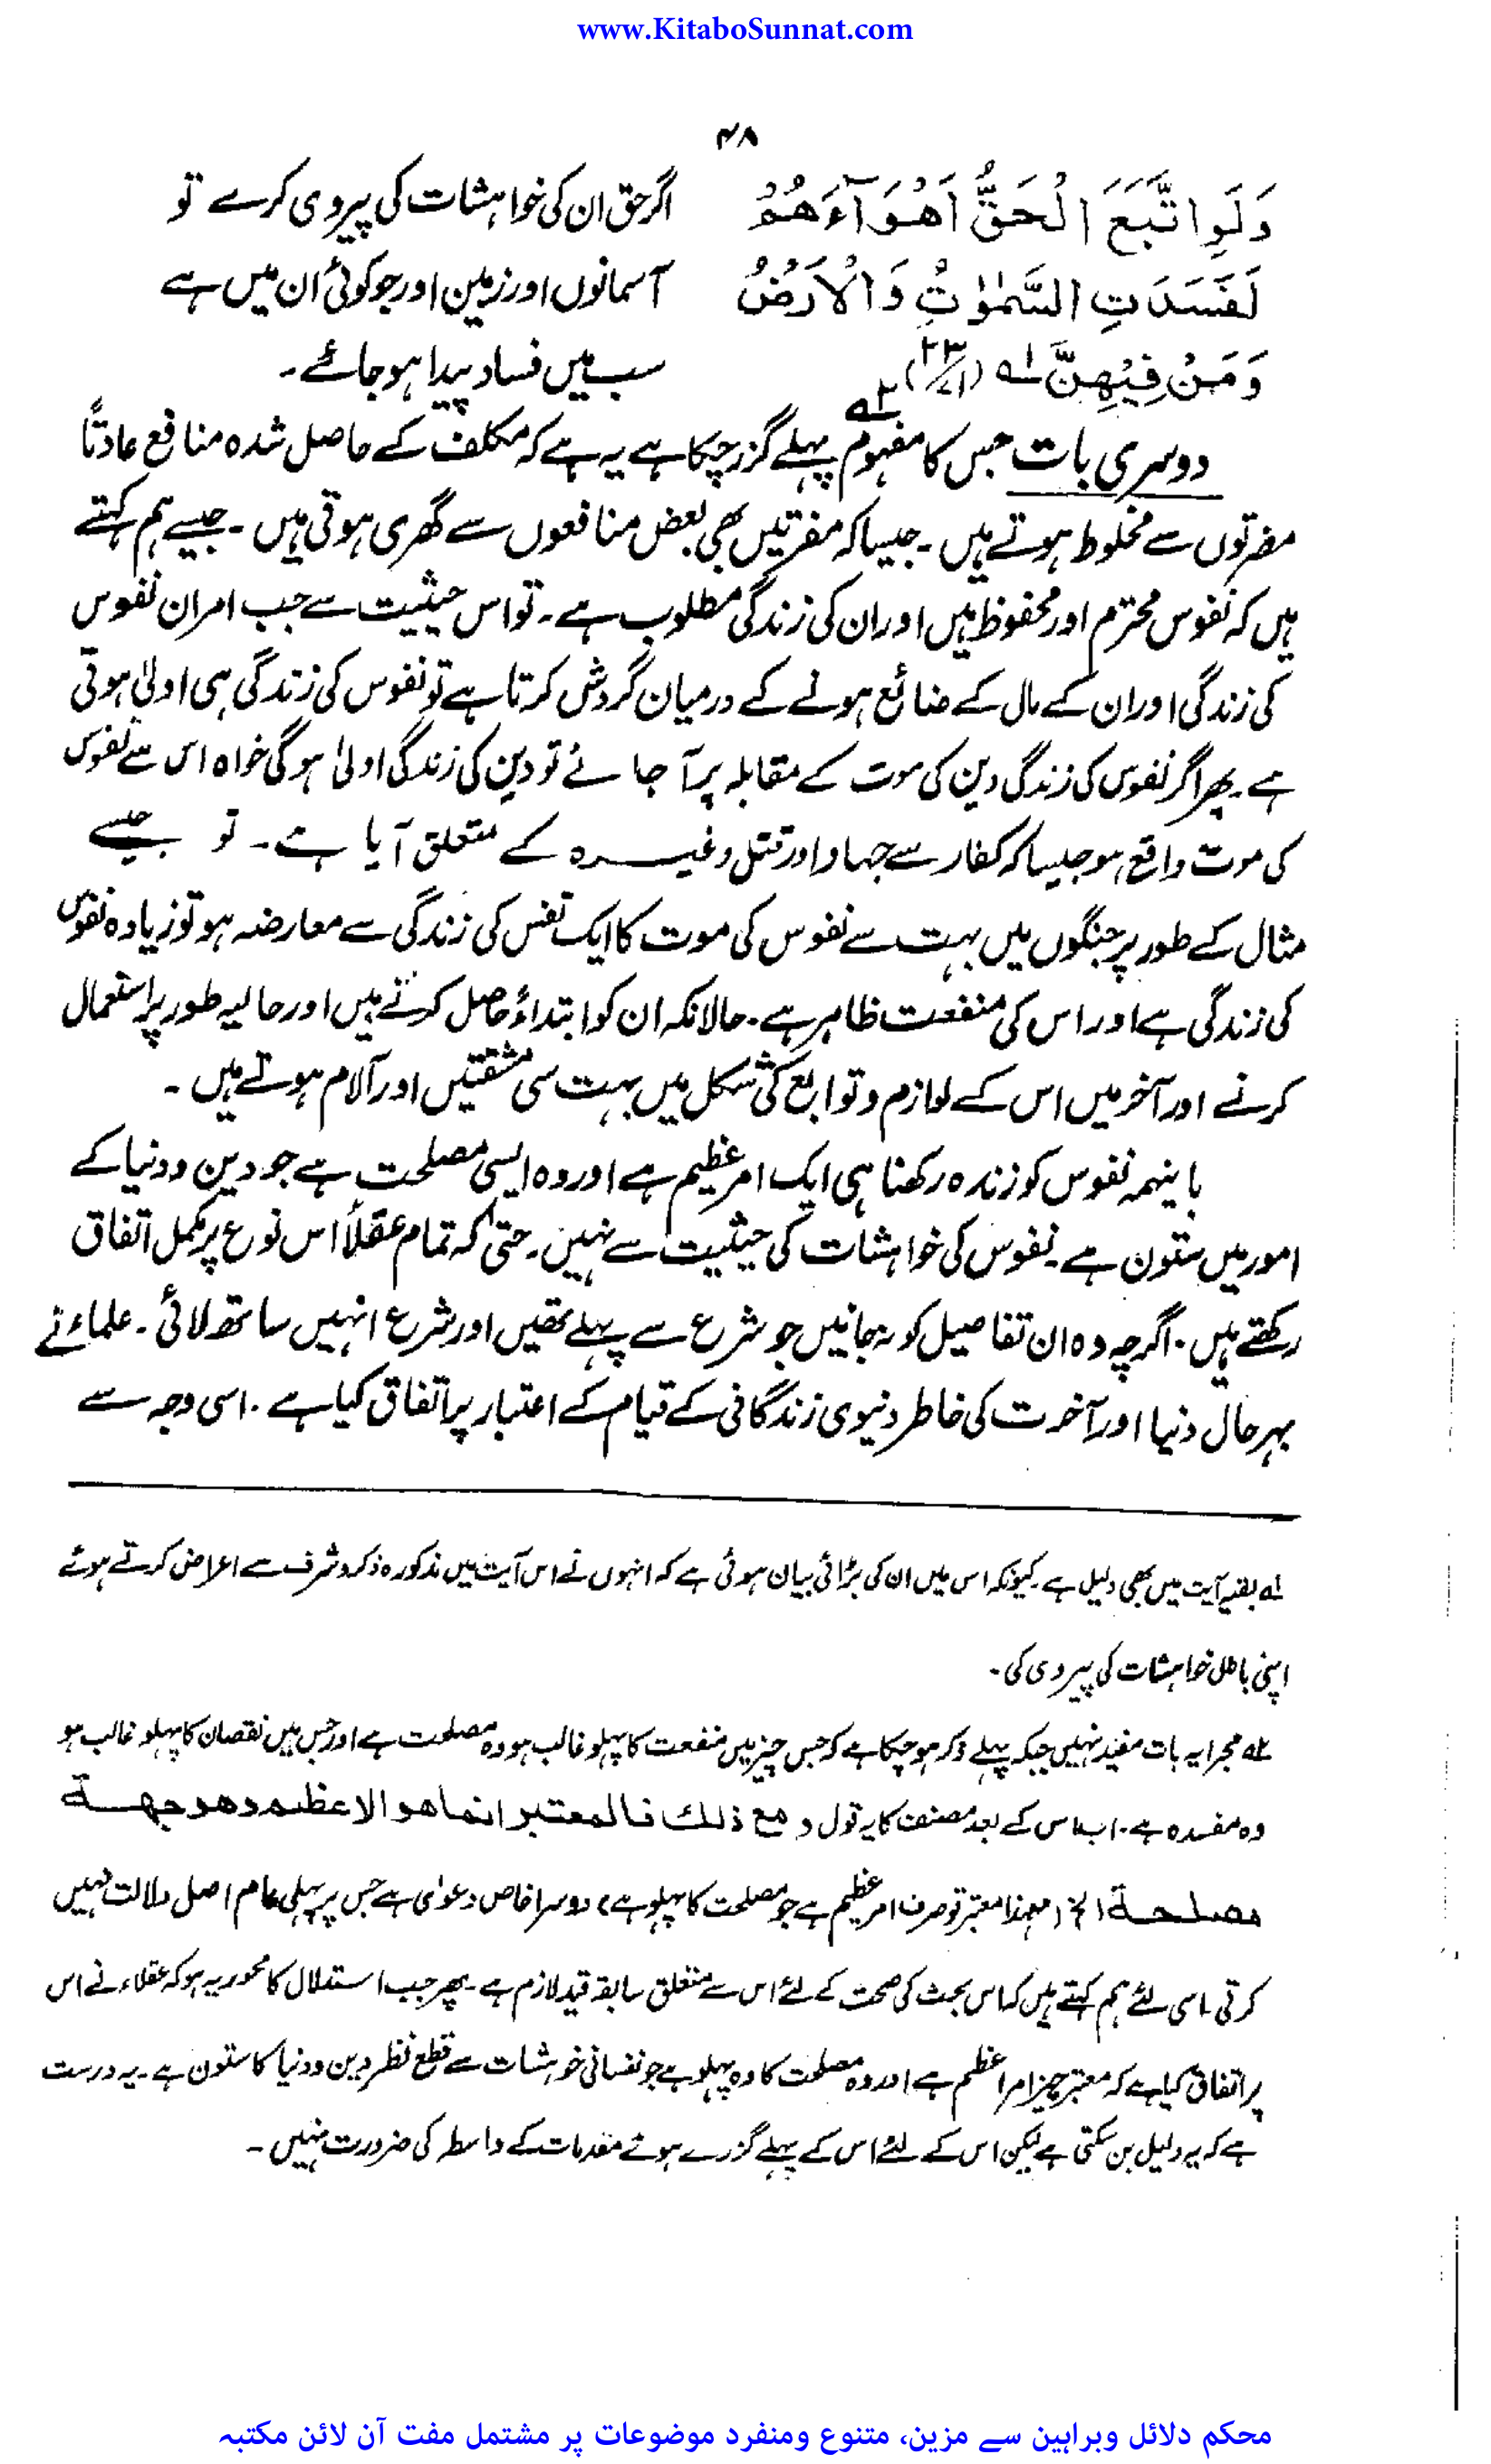 www.KitaboSunnat.com
۴۸
وَلَوِ اتَّبَعَ الْحَقُّ اَهْوَآءَهُمْ اگر حق ان کی خواہشات کی پیروی کرے تو
لَفَسَدَتِ السَّمٰوٰتُ وَالْاَرْضُ آسمانوں اور زمین اور جو کوئی ان میں ہے
وَمَنْ فِيْهِنَّ لہ (۲۳/۷۱) سب میں فساد پیدا ہو جائے۔
دوسری بات جس کا مفہوم ۲ہ پہلے گزر چکا ہے یہ ہے کہ مکلف کے حاصل شدہ منافع عادتاً
مضرتوں سے مخلوط ہوتے ہیں۔ جیسا کہ مضرتیں بھی بعض منافعوں سے گھری ہوتی ہیں۔ جیسے ہم کہتے
ہیں کہ نفوس محترم اور محفوظ ہیں اور ان کی زندگی مطلوب ہے۔ تو اس حیثیت سے جب امر ان نفوس
کی زندگی اور ان کے مال کے ضائع ہونے کے درمیان گردش کرتا ہے تو نفوس کی زندگی ہی اولیٰ ہوتی
ہے۔ پھر اگر نفوس کی زندگی دین کی موت کے مقابلہ پر آ جائے تو دین کی زندگی اولیٰ ہو گی خواہ اس سے نفوس
کی موت واقع ہو جیسا کہ کفار سے جہاد اور قتل وغیرہ کے متعلق آیا ہے۔ تو جیسے
مثال کے طور پر جنگوں میں بہت سے نفوس کی موت کا ایک نفس کی زندگی سے معارضہ ہو تو زیادہ نفوس
کی زندگی ہے اور اس کی منفعت ظاہر ہے۔ حالانکہ ان کو ابتداءً حاصل کرتے ہیں اور حالیہ طور پر استعمال
کرنے اور آخر میں اس کے لوازم و توابع کی شکل میں بہت سی مشقتیں اور آلام ہوتے ہیں۔
باینہمہ نفوس کو زندہ رکھنا ہی ایک امر عظیم ہے اور وہ ایسی مصلحت ہے جو دین و دنیا کے
امور میں ستون ہے۔ نفوس کی خواہشات کی حیثیت سے نہیں۔ حتیٰ کہ تمام عقلاً اس نوع پر مکمل اتفاق
رکھتے ہیں۔ اگرچہ وہ ان تفاصیل کو نہ جانیں جو شرع سے پہلے تھیں اور شرع انہیں ساتھ لائی۔ علماء نے
بہر حال دنیا اور آخرت کی خاطر دنیوی زندگانی کے قیام کے اعتبار پر اتفاق کیا ہے۔ اسی وجہ سے
لہ بقیہ آیت میں بھی دلیل ہے۔ کیونکہ اس میں ان کی بڑائی بیان ہوئی ہے کہ انہوں نے اس آیت میں مذکورہ ذکر و شرف سے اعراض کرتے ہوئے
اپنی باطل خواہشات کی پیروی کی۔
۲ہ مجرد یہ بات مفید نہیں جبکہ پہلے ذکر ہو چکا ہے کہ جس چیز میں منفعت کا پہلو غالب ہو وہ مصلحت ہے اور جس میں نقصان کا پہلو غالب ہو
وہ مفسدہ ہے۔ اب اس کے بعد مصنف کا یہ قول و مع ذلك فالمعتبر انما هو الاعظم وهو جهة
مصلحة الخ (معہذا معتبر تو صرف امر عظیم ہے جو مصلحت کا پہلو ہے) دوسرا خاص دعوٰی ہے جس پر پہلی عام اصل دلالت نہیں
کرتی۔ اسی لئے ہم کہتے ہیں کہ اس بحث کی صحت کے لئے اس سے متعلق سابقہ قید لازم ہے۔ پھر جب استدلال کا محور یہ ہو کہ عقلاء نے اس
پر اتفاق کیا ہے کہ معتبر چیز امر اعظم ہے اور وہ مصلحت کا وہ پہلو ہے جو نفسانی خواہشات سے قطع نظر دین و دنیا کا ستون ہے۔ یہ درست
ہے کہ یہ دلیل بن سکتی ہے لیکن اس کے لئے اس کے پہلے گزرے ہوئے مقدمات کے واسطہ کی ضرورت نہیں۔
محکم دلائل وبراہین سے مزین، متنوع ومنفرد موضوعات پر مشتمل مفت آن لائن مکتبہ